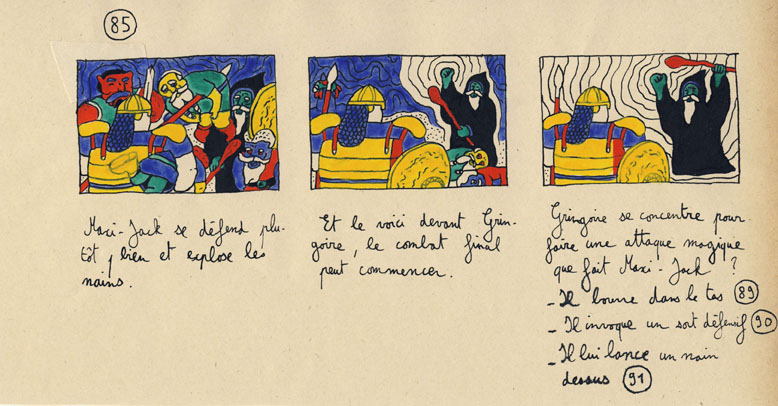 85
Maxi-Jack se défend plu-
tôt bien et explose les
nains.
Et le voici devant Grin-
goire, le combat final
peut commencer.
Gringoire se concentre pour
faire une attaque magique
que fait Maxi-Jack ?
- Il bourre dans le tas 89
- Il invoque un sort défensif 90
- Il lui lance un nain
dessus 91